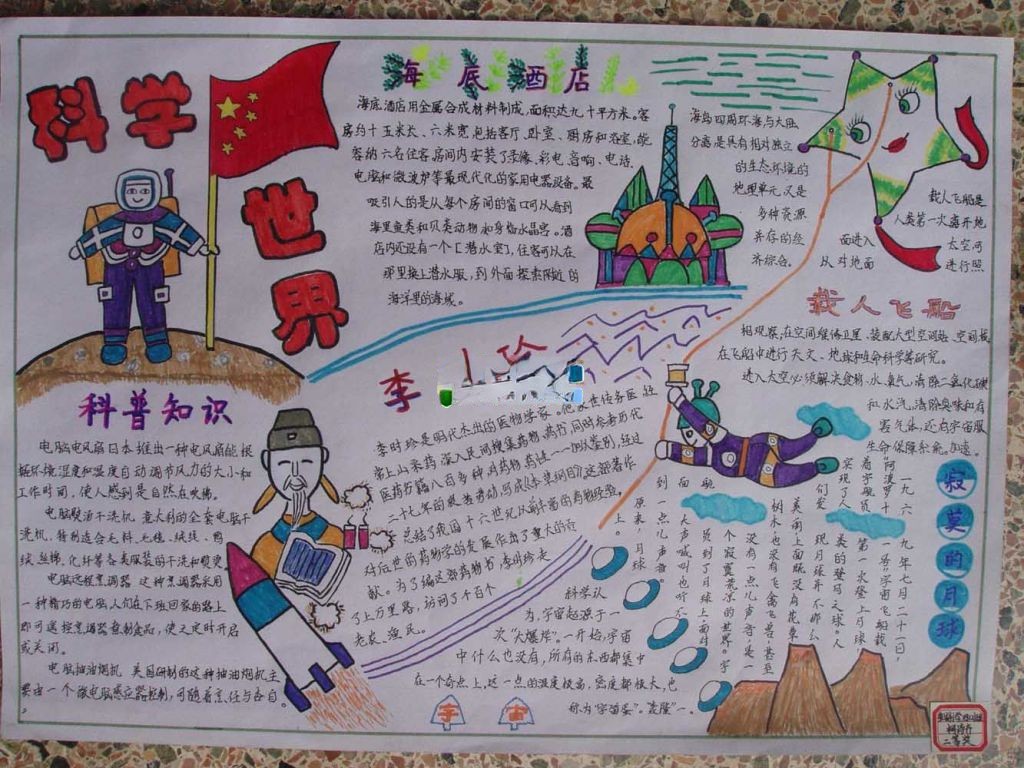 科学
世界
海底酒店
海底酒店用金属合成材料制成,面积达九十平方米。客
房约十五米长、六米宽,包括客厅、卧室、厨房和浴室,能
容纳六名住客。房间内安装了录像、彩电、音响、电话、
电脑和微波炉等最现代化的家用电器设备。最
吸引人的是从每个房间的窗口可以看到
海里鱼类和贝类动物和身临水晶宫。酒
店内还设有一个[潜水室],住客可以在
那里换上潜水服,到外面探索附近的
海洋里的海城。
海岛四周环海与大陆
分离,是具有相对独立
的生态环境的
地理单元,又是
多种资源
并存的经
济综合。
载人飞船是
人类第一次离开地
面进入太空可
从对地面进行照
载人飞船
相观察,在空间维修卫星、装配大型空间站、空间
在飞船中进行天文、地球和生命科学等研究。
进入太空必须解决食物、水、氧气,清除二氧化碳
和水汽,清除臭味和有
害气体,还有宇宙服
生命保障系统。
科普知识
电脑电风扇 日本推出一种电风扇能根
据环境湿度和温度自动调节风力的大小和
工作时间,使人感到是自然在吹拂。
电脑熨汤干洗机 意大利的全套电脑干
洗机,特别适合毛料、毛毯、绒毯、鸭
绒、丝棉、化纤等各类服装的干洗和熨烫
电脑远程烹调器 这种烹调器采用
一种精巧的电脑,人们在下班回家的路上
即可遥控烹调器烹制食品,使之定时开启
或关闭。
电脑抽油烟机 美国研制的这种抽油烟机主
要由一个微电脑感应器控制,可随着烹饪与各自。
李
李时珍是明代杰出的医物学家。他家世传务医,经
常上山采药,深入民间搜集药物,药书,同时参考历代
医药书籍八百多种,对药物药性一一加以鉴别,经过
二十七年的艰苦劳动,写成《本草纲目》这部著作
总结了我国十六世纪以前丰富的药物经验,
对后世的药物学的发展作出了重大的贡
献。为了编这部药物书,李时珍走
了上万里路,访问了千百个
老农、渔民。
宇宙
科学认
为,宇宙起源于一
次“大爆炸”。一开始,宇宙
中什么也没有,所有的东西都集中
在一个奇点上,这一点的温度极高,密度都极大,也
称为“宇宙蛋”。
寂莫的月球
一九六九年七月二十一日,
“阿波罗”十一号宇宙飞船载
着宇航员第一次登上月球,
实现了人类的登月之球。人
们发现月球并不那么
美丽,上面既没有花草
树木,也没有飞禽飞兽,甚至
没有一点儿声音,是一
个寂寞荒凉的世界。宇
航员到了月球上面对
面大声喊叫也听不
到一点儿声音。
原来,月球
上。
二等奖